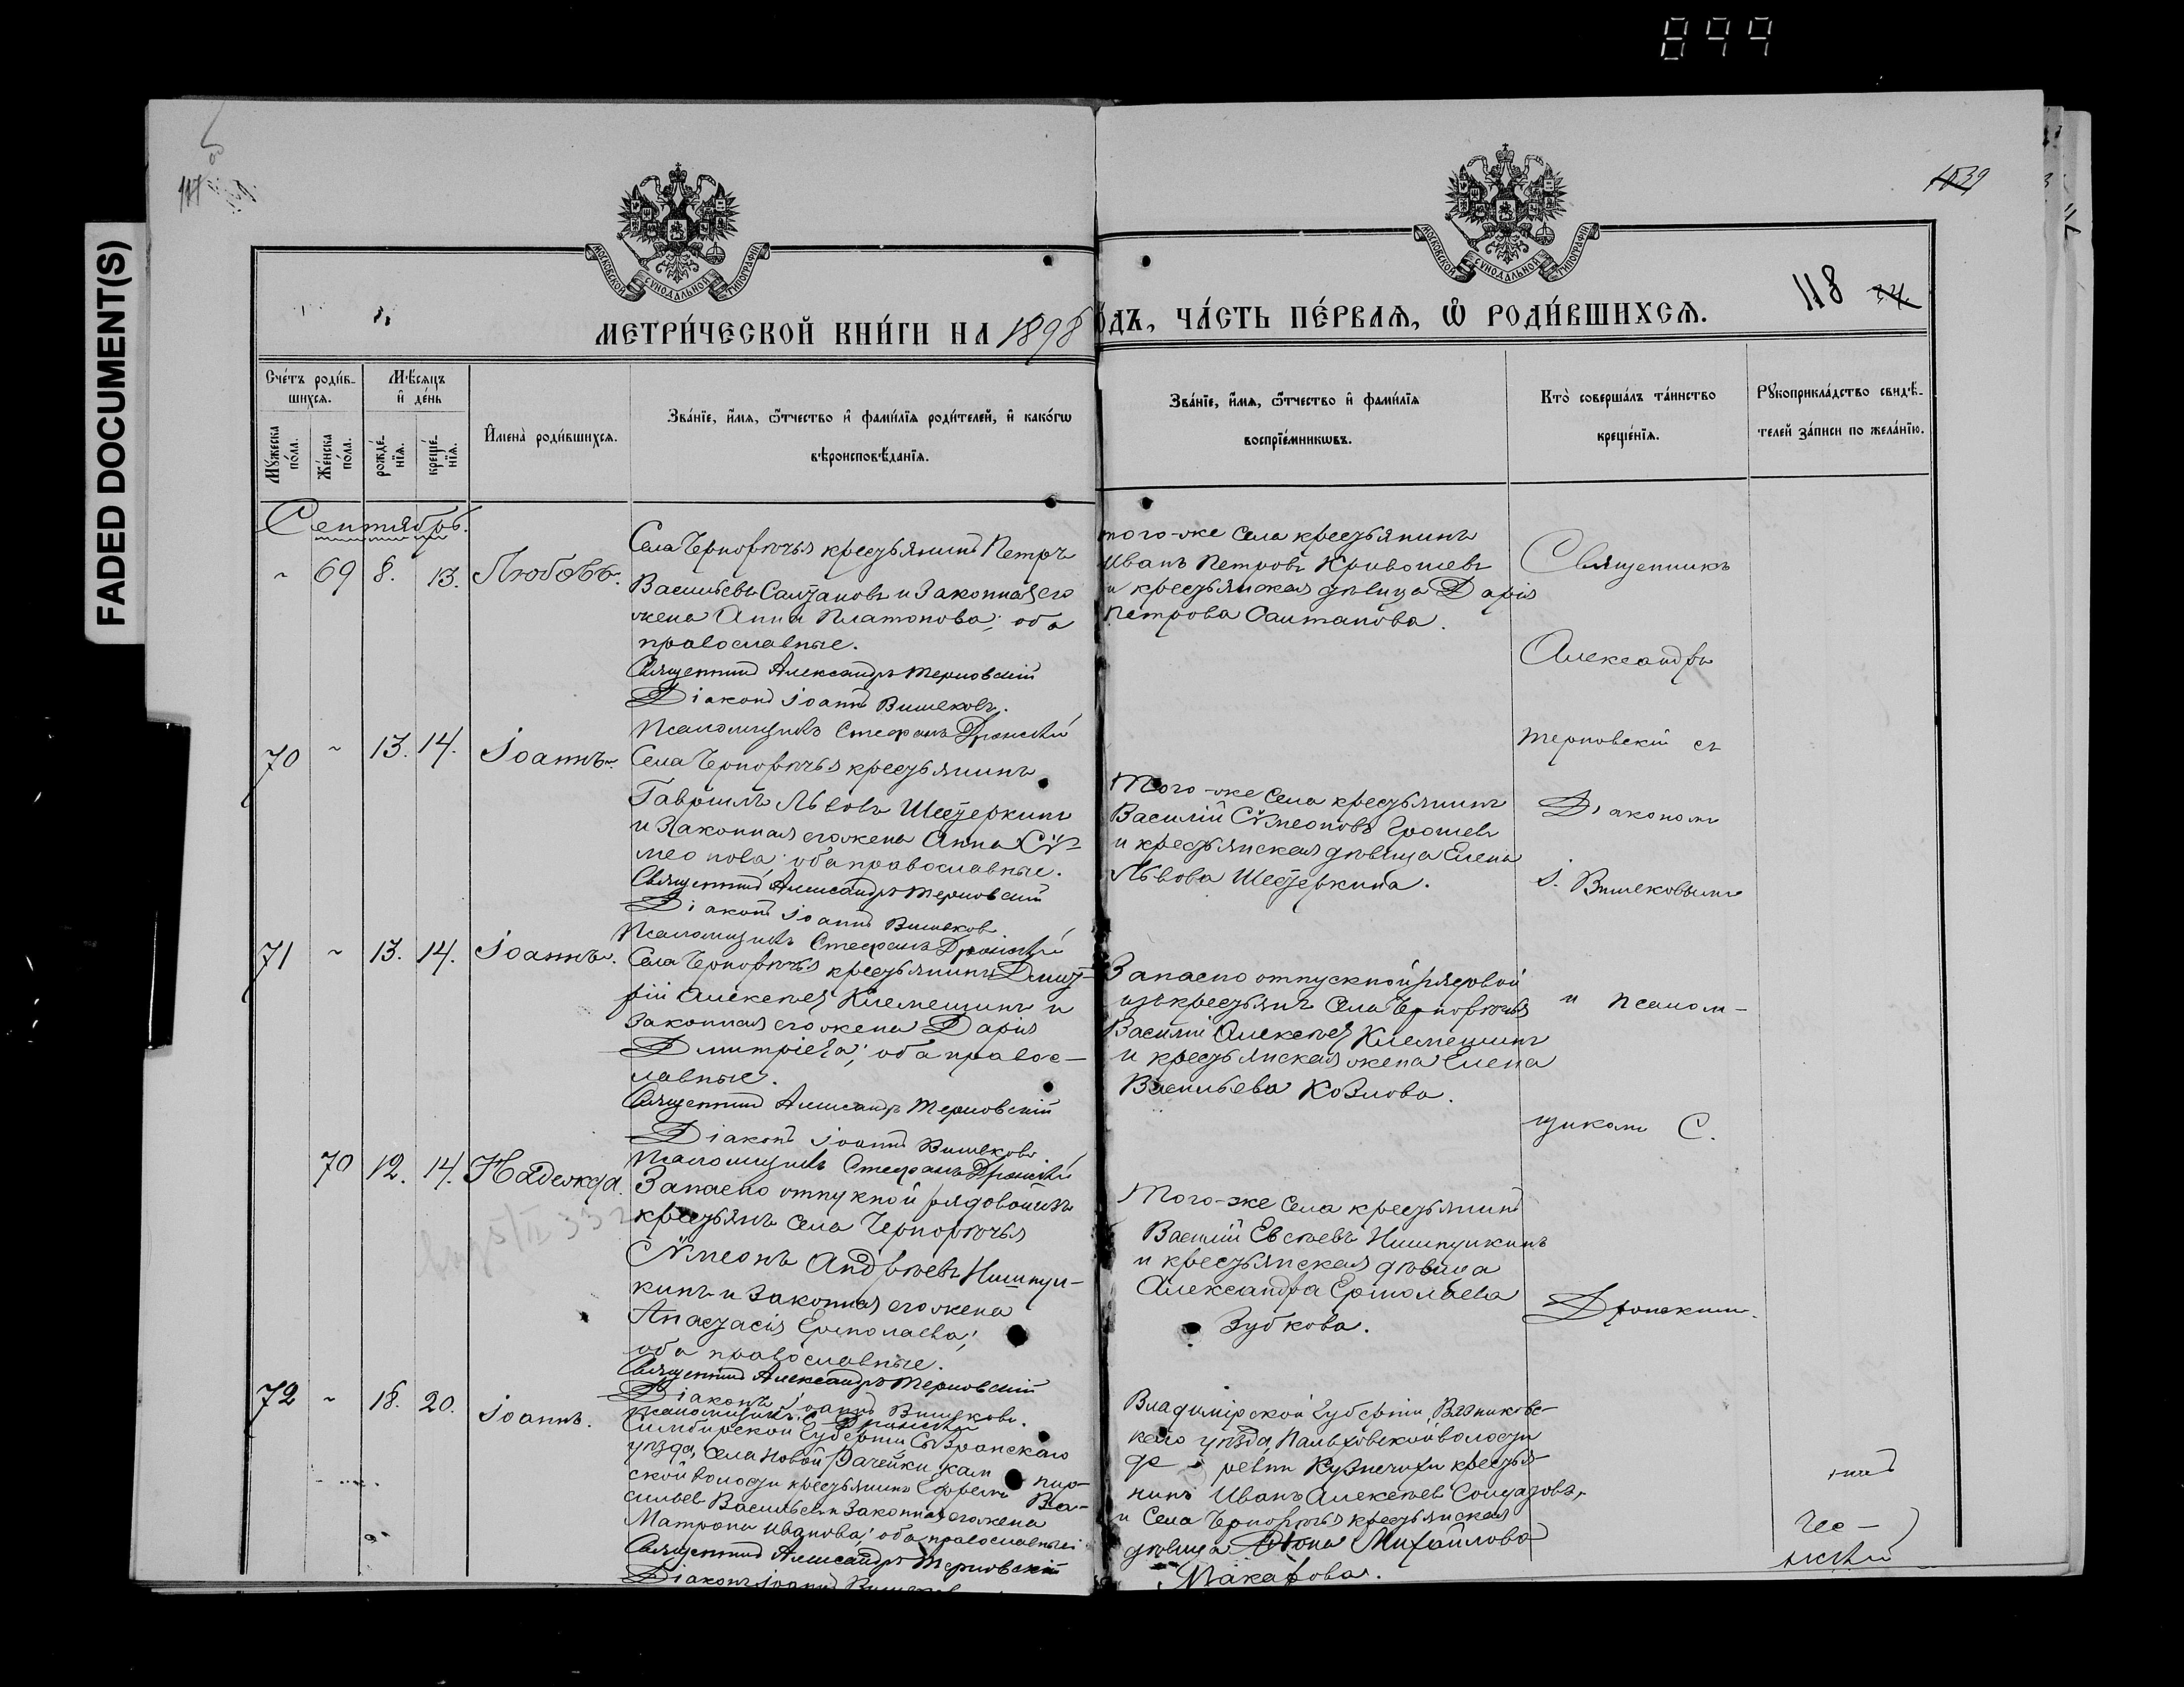 899
FADED DOCUMENT(S)
117
1839
МОСКОВСКОЙ СѴНОДАЛЬНОЙ ТИПОГРАФІИ
МОСКОВСКОЙ СѴНОДАЛЬНОЙ ТИПОГРАФІИ
118
МЕТРИ́ЧЕСКОЙ КНИ́ГИ НА 1898
ОДЪ, ЧА́СТЬ ПЕ́РВАѦ, Ѽ РОДИ́ВШИХСѦ.
Сче́тъ роди́в-
шихсѧ.
Мꙋ́жеска по́ла.
Же́нска по́ла.
Мѣ́сѧцъ и҆ де́нь
рожде́-нїѧ.
креще́-нїѧ.
И҆мена̀ роди́вшихсѧ.
Зва́нїе, и҆́мѧ, ѻ҆́тчество и҆ фами́лїѧ роди́телей, и҆ како́гѡ
вѣроисповѣ́данїѧ.
Зва́нїе, и҆́мѧ, ѻ҆́тчество и҆ фами́лїѧ
воспрїе́мникѡвъ.
Кто̀ соверша́лъ та́инство
креще́нїѧ.
Рꙋкоприкла́дство свидѣ́-
телей за́писи по жела́нїю.
Сентябрь.
~ 69 8. 13. Любовь.
Села Чернорѣчья крестьянинъ Петръ
Васильевъ Салтановъ и законная его
жена Анна Платонова; оба
православные.
Священникъ Александръ Терновскій
Діаконъ Іоаннъ Вишековъ.
Псаломщикъ Стефанъ Дронскій
того-же села крестьянинъ
Иванъ Петровъ Кривошевъ
и крестьянская дѣвица Дарія
Петрова Салтанова.
Священникъ
Александръ
Терновскій съ
Діакономъ
І. Вишековымъ
и псалом-
щикомъ С.
Дронскимъ.
70 ~ 13. 14. Іоаннъ.
Села Чернорѣчья крестьянинъ
Гавріилъ Львовъ Шестеркинъ
и законная его жена Анна Сѵ-
меонова; оба православные.
Священникъ Александръ Терновскій
Діаконъ Іоаннъ Вишековъ
Псаломщикъ Стефанъ Дронскій
Того-же села крестьянинъ
Василій Сѵмеоновъ Грошевъ
и крестьянская дѣвица Елена
Львова Шестеркина.
71 ~ 13. 14. Іоаннъ.
Села Чернорѣчья крестьянинъ Дмит-
рій Алексѣевъ Клемешинъ и
законная его жена Дарія
Димитріева; оба правос-
лавные.
Священникъ Александръ Терновскій
Діаконъ Іоаннъ Вишековъ.
Псаломщикъ Стефанъ Дронскій
Запасно отпускной рядовой
изъ крестьянъ села Чернорѣчья
Василій Алексѣевъ Клемешинъ
и крестьянская жена Елена
Васильева Козлова.
70 12. 14. Надежда.
Запасно отпускной рядовой изъ
крестьянъ села Чернорѣчья
Сѵмеонъ Андреевъ Нишпуш-
кинъ и законная его жена
Анастасія Ермолаева;
оба православные.
Священникъ Александръ Терновскій
Діаконъ Іоаннъ Вишековъ.
Псаломщикъ С. Дронскій
Того-же села крестьянинъ
Василій Евсѣевъ Нишпушкинъ
и крестьянская дѣвица
Александра Ермолаева
Зубкова.
72 ~ 18. 20. Іоаннъ.
Симбирской губерніи Сызранскаго
уѣзда, села Новой Рачейки
ской волости крестьянинъ Ефремъ Ва-
сильевъ Васильевъ и законная его жена
Матрона Иванова; оба православные.
Священникъ Александръ Терновскій
Діаконъ Іоаннъ Вишековъ
Владимірской губерніи, Вязниковс-
каго уѣзда, Палеховской волости
деревни Кузнечихи крестья-
нинъ Иванъ Алексѣевъ Солдатовъ,
и села Чернорѣчья крестьянская
дѣвица Михайлова
Макарова.